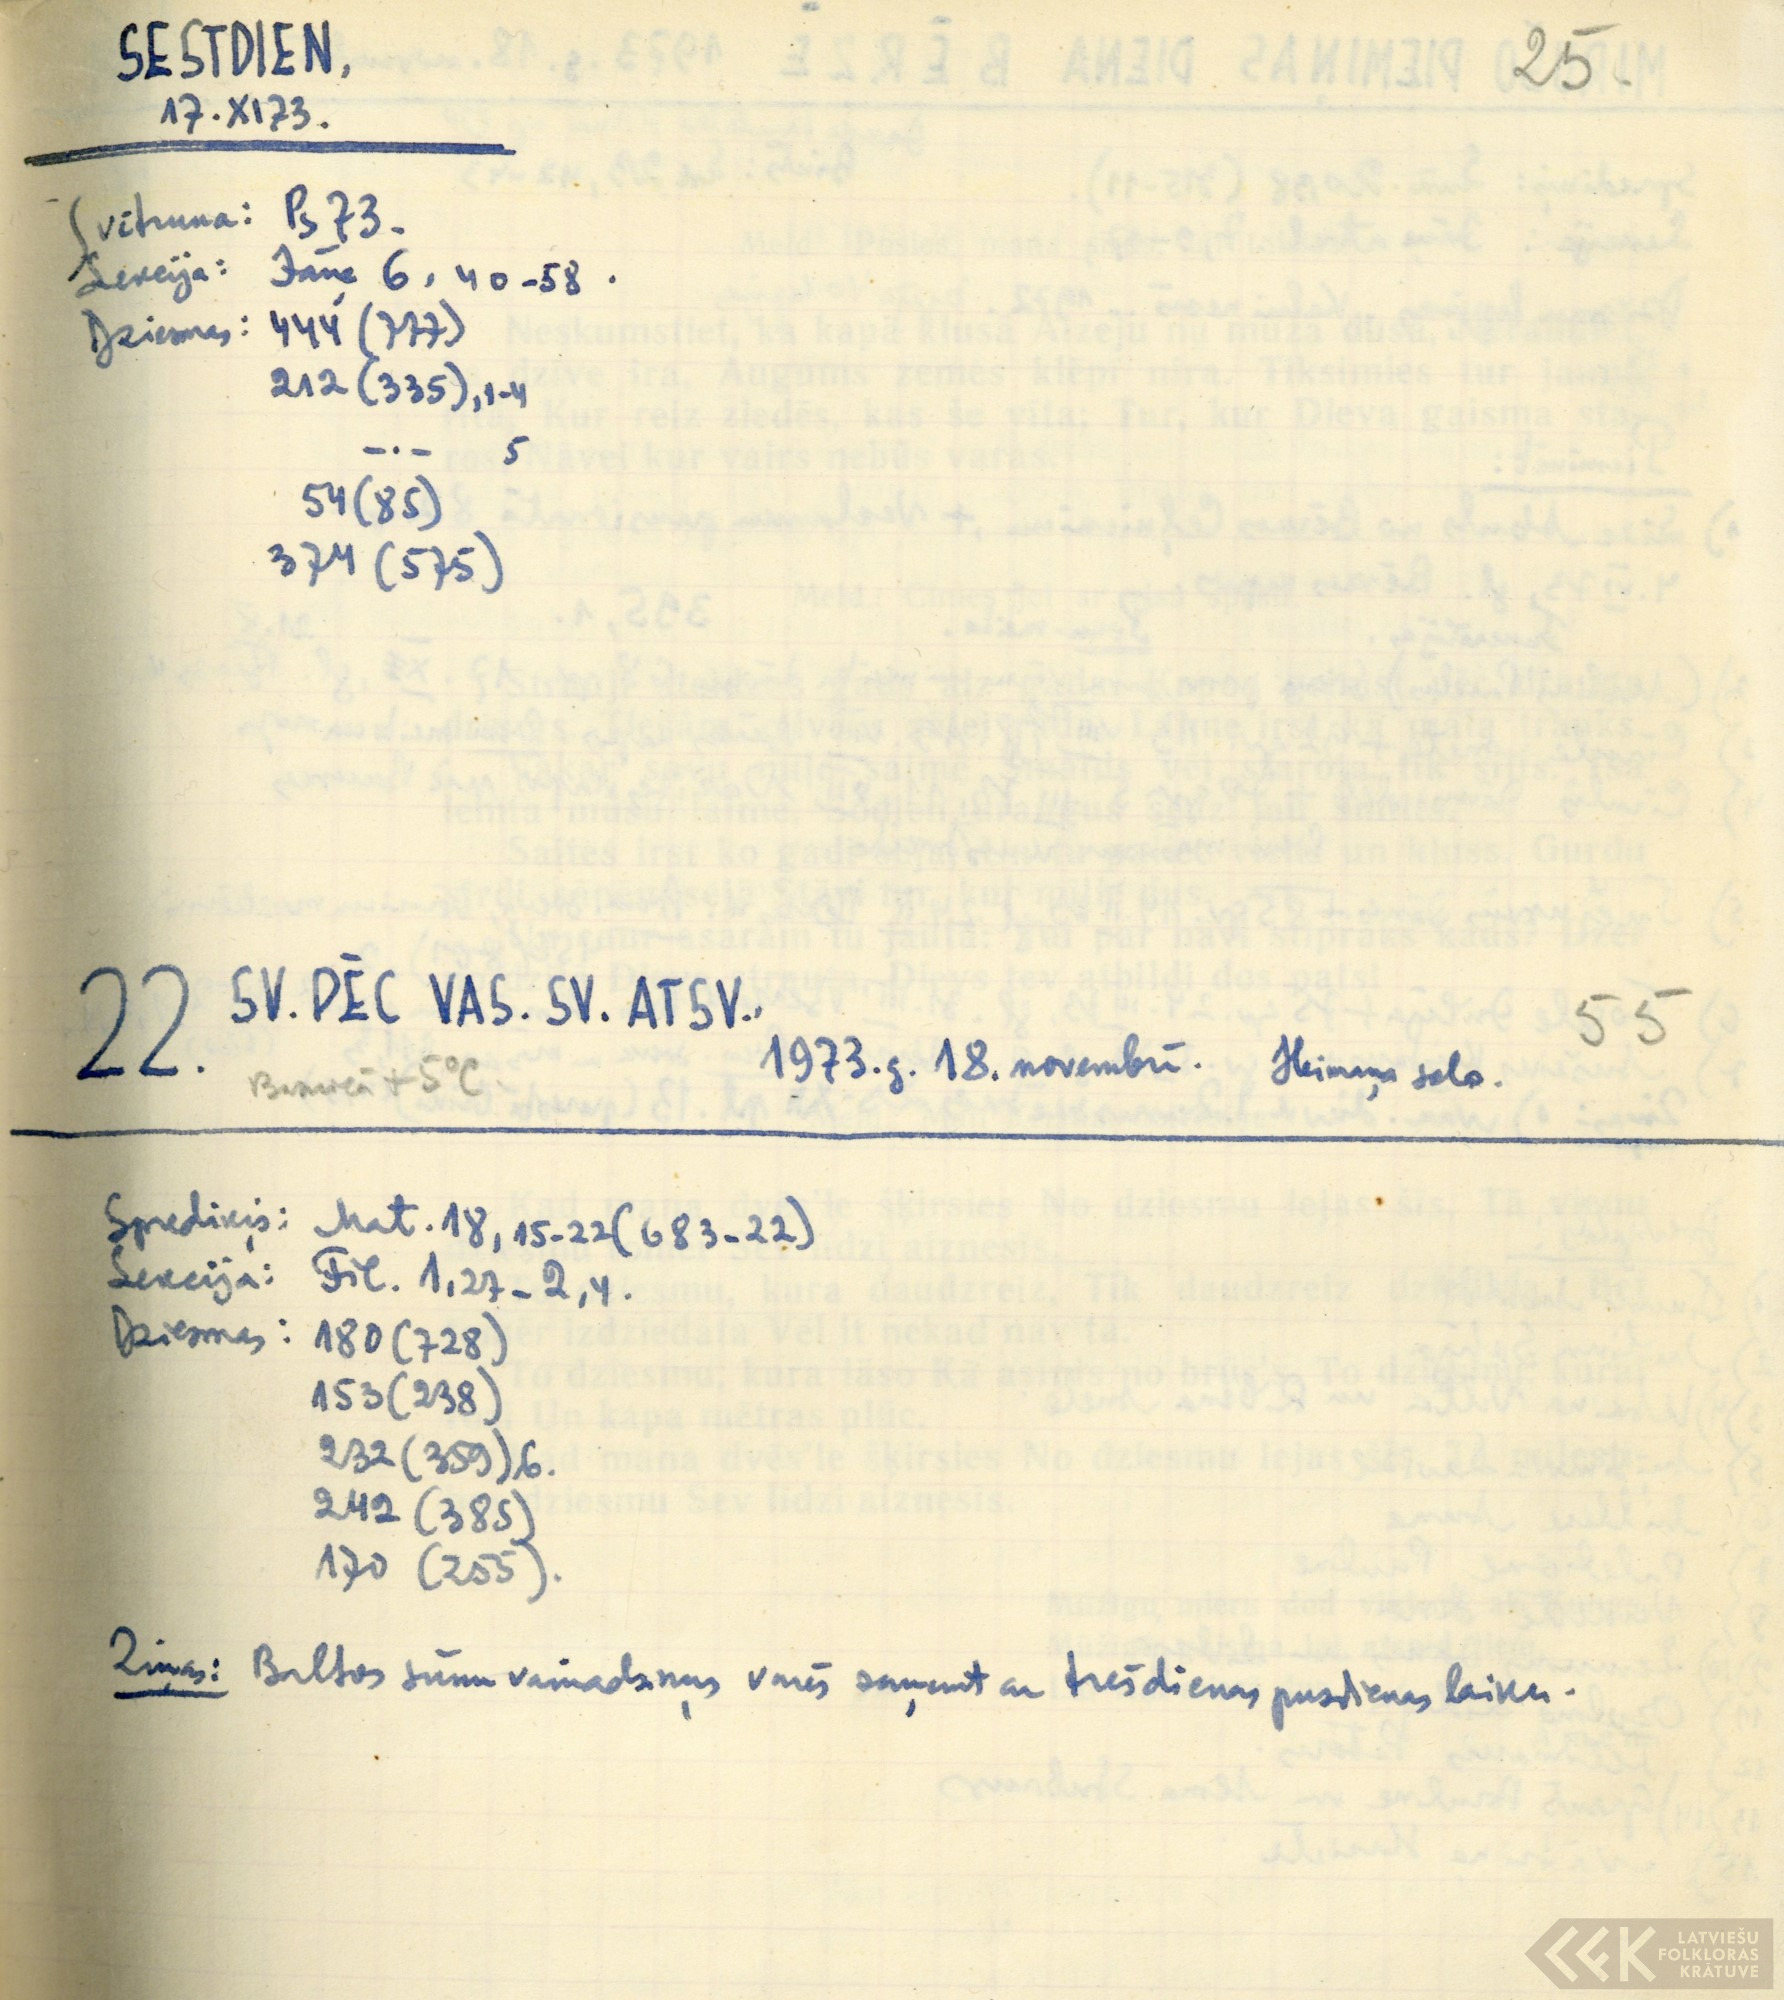 SESTDIEN, 25.
17.XI73.
Svētruna: Ps 73.
Lekcija: Jāņa 6, 40-58.
Dziesmas: 444 (777)
212 (335), 1-4
-.- 5
54 (85)
374 (575)
22. SV. PĒC VAS. SV. ATSV., 55
Baznīcā +5°C. 1973.g. 18. novembrī. Heimaņa solo.
Sprediķis: Mat. 18, 15-22 (683-22)
Lekcija: Fil. 1,27-2,4.
Dziesmas: 180 (728)
153 (238)
232 (359) 6.
242 (385)
170 (255).
Ziņas: Baltos sūnu vainadziņus varēs saņemt ar trešdienas pusdienas laiku.
LATVIEŠU
FOLKLORAS
KRĀTUVE